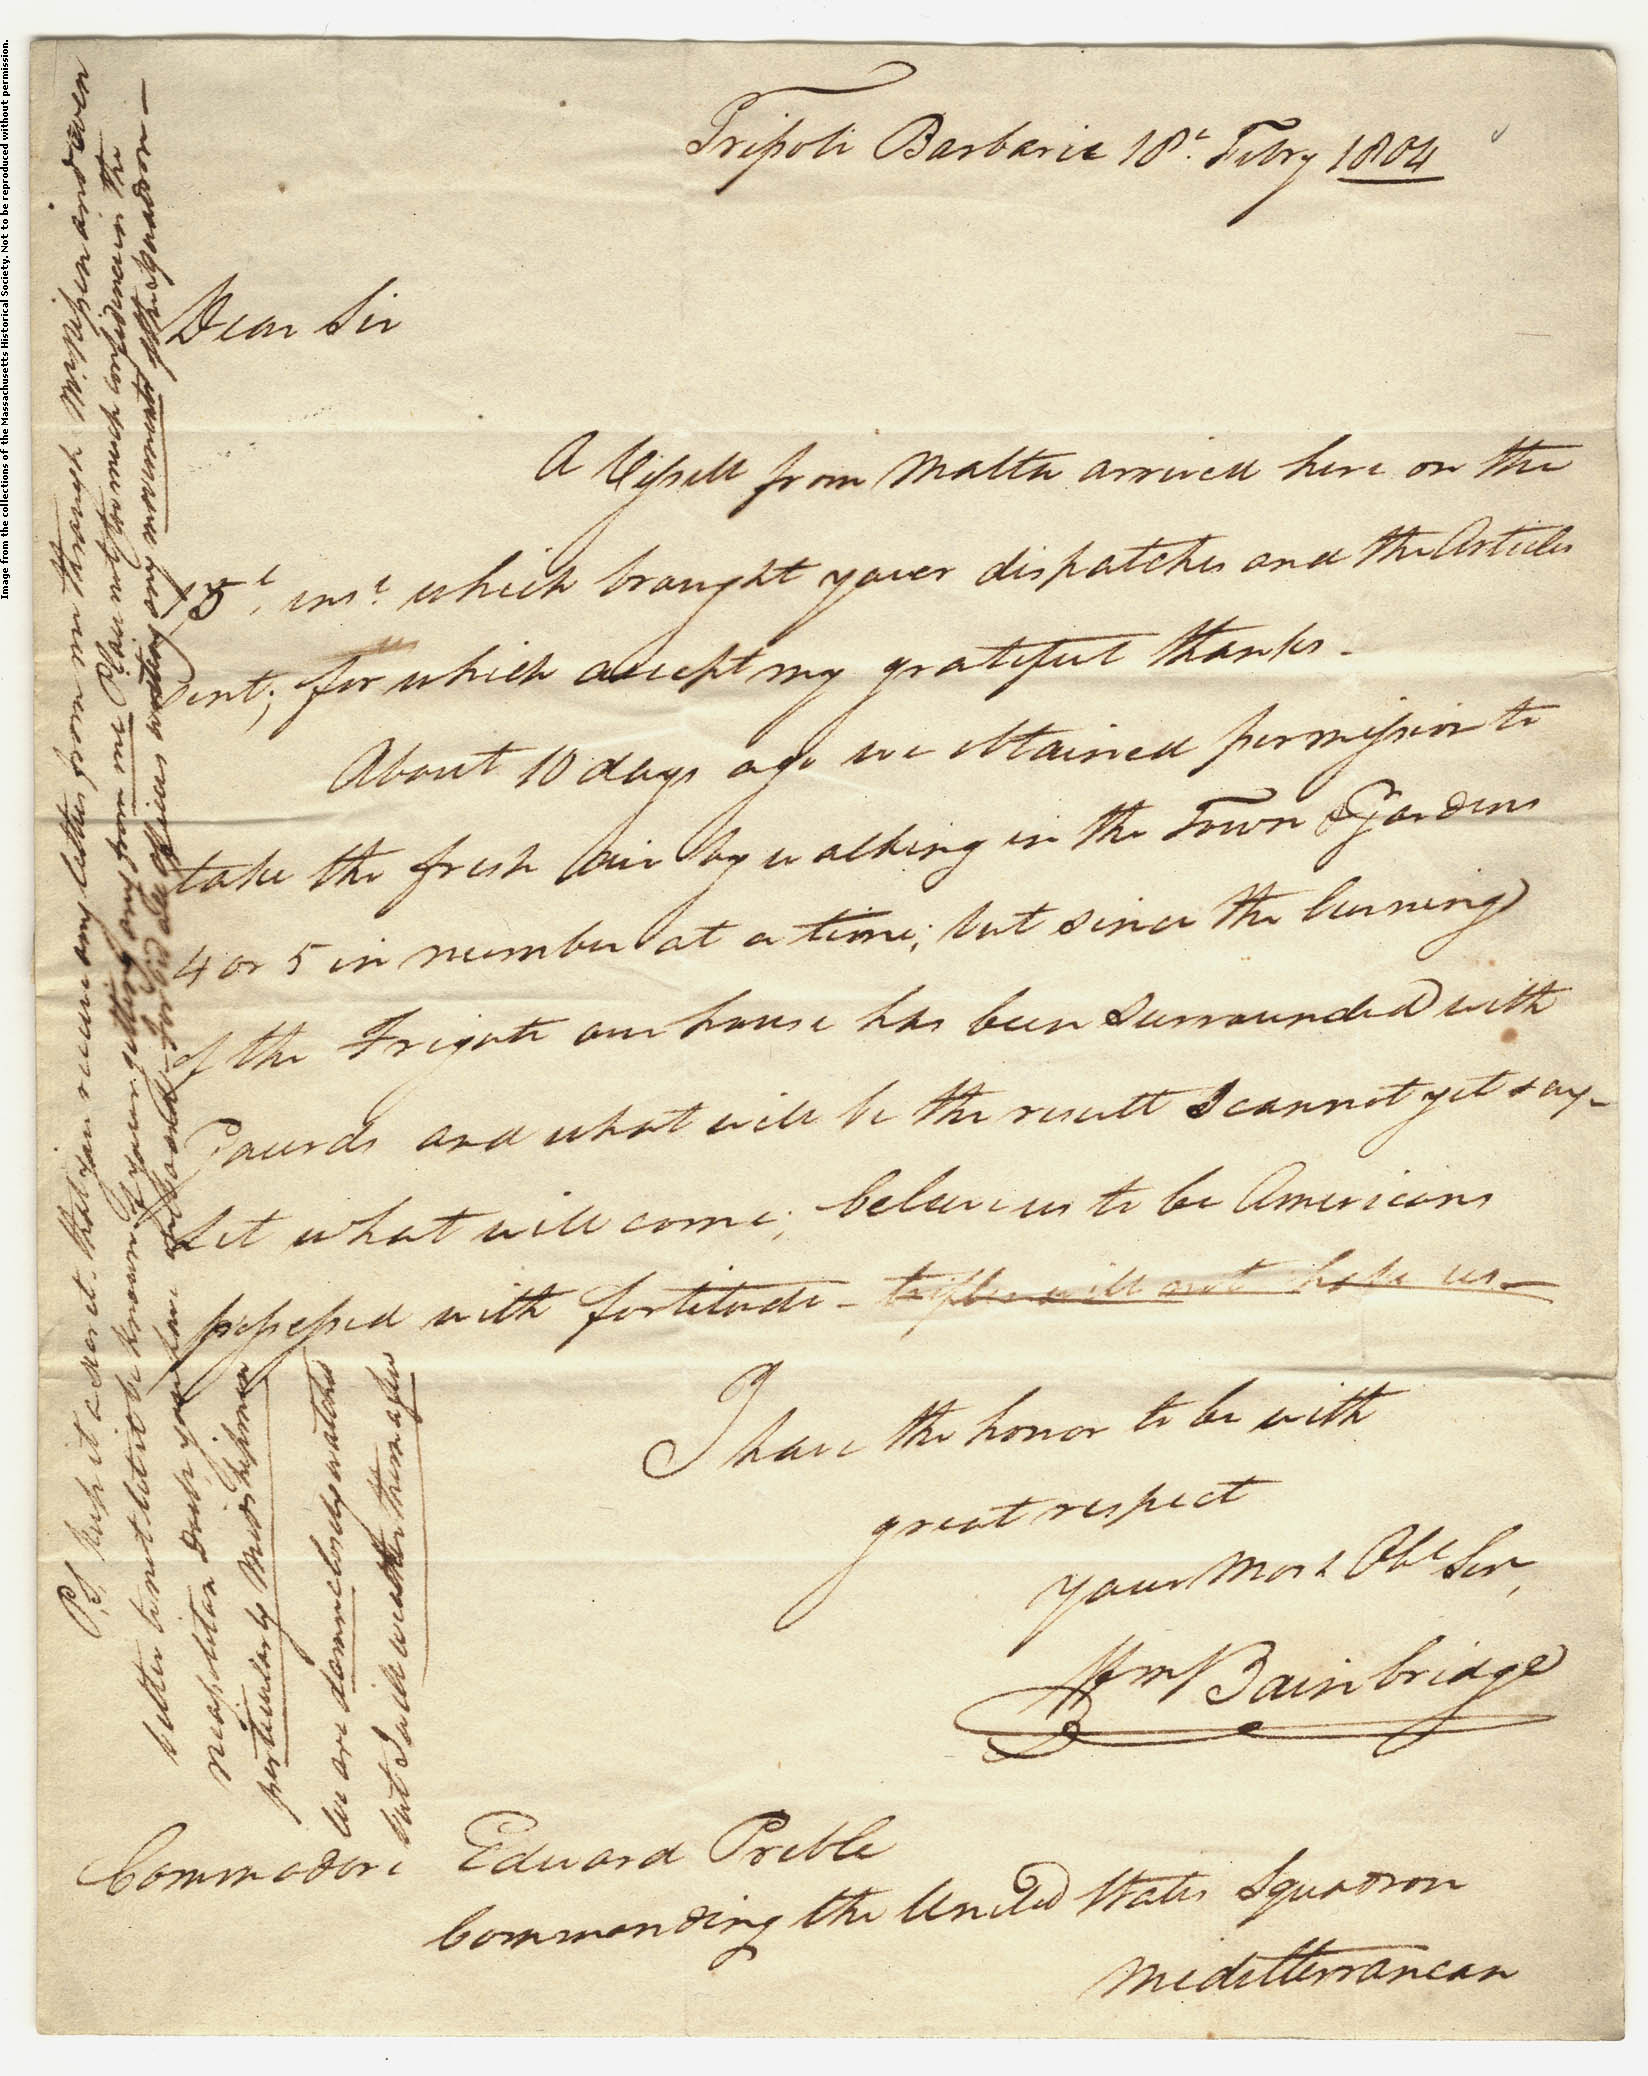 Tripoli Barbarie 18t. Febry 1804
Dear Sir
A Vessell from Malta arrived here on the
15t. inst. which brought your dispatches and the Articles
sent; for which accept my grateful thanks.
About 10 days ago we obtained permission to
take the fresh Air by walking in the Town & Gardens
4 or 5 in number at a time; but since the burning
of the Frigate our house has been surrounded with
Guards and what will be the result I cannot yet say-
Let what will come; beleive us to be Americans
possessed with fortitude - trifles will not us-
I have the honor to be with
great respect
your most Obt Ser,
Wm Bainbridge
Commodore Edward Preble
Commanding the United States Squadron
Mediterranean
PS Keep it a secret, that you receive any letters from me through Mr. Nissen and even
better to not let it be known of your getting any from me Place not too much confidence in the
Neapolitan you have on board. Forbid all officers writing any movements of the Squadron-
perticularly Midshipmen
We are damn closely watched
but I will weather them after
Image from the collections of the Massachusetts Historical Society. Not to be reproduced without permission.